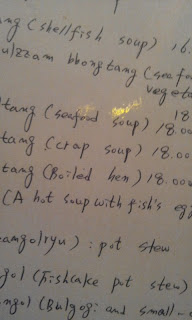 ang (shellfish soup) 16.
ulzzam bbongtang (seafo
vegeta
18
tang (seafood soup) 18.00
tang (crap soup) 18.00
tang (Boiled hen) 18.000
(A hot soup with fish's eg
eamgolryu) : pot stew
gol (Fishcake pot stew)
ngol (Bulgogi and small-